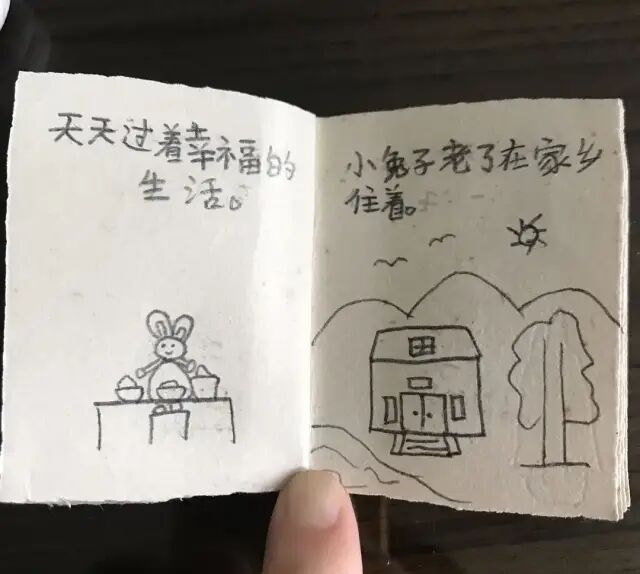 天天过着幸福的
生活。
小兔子老了在家乡
住着。